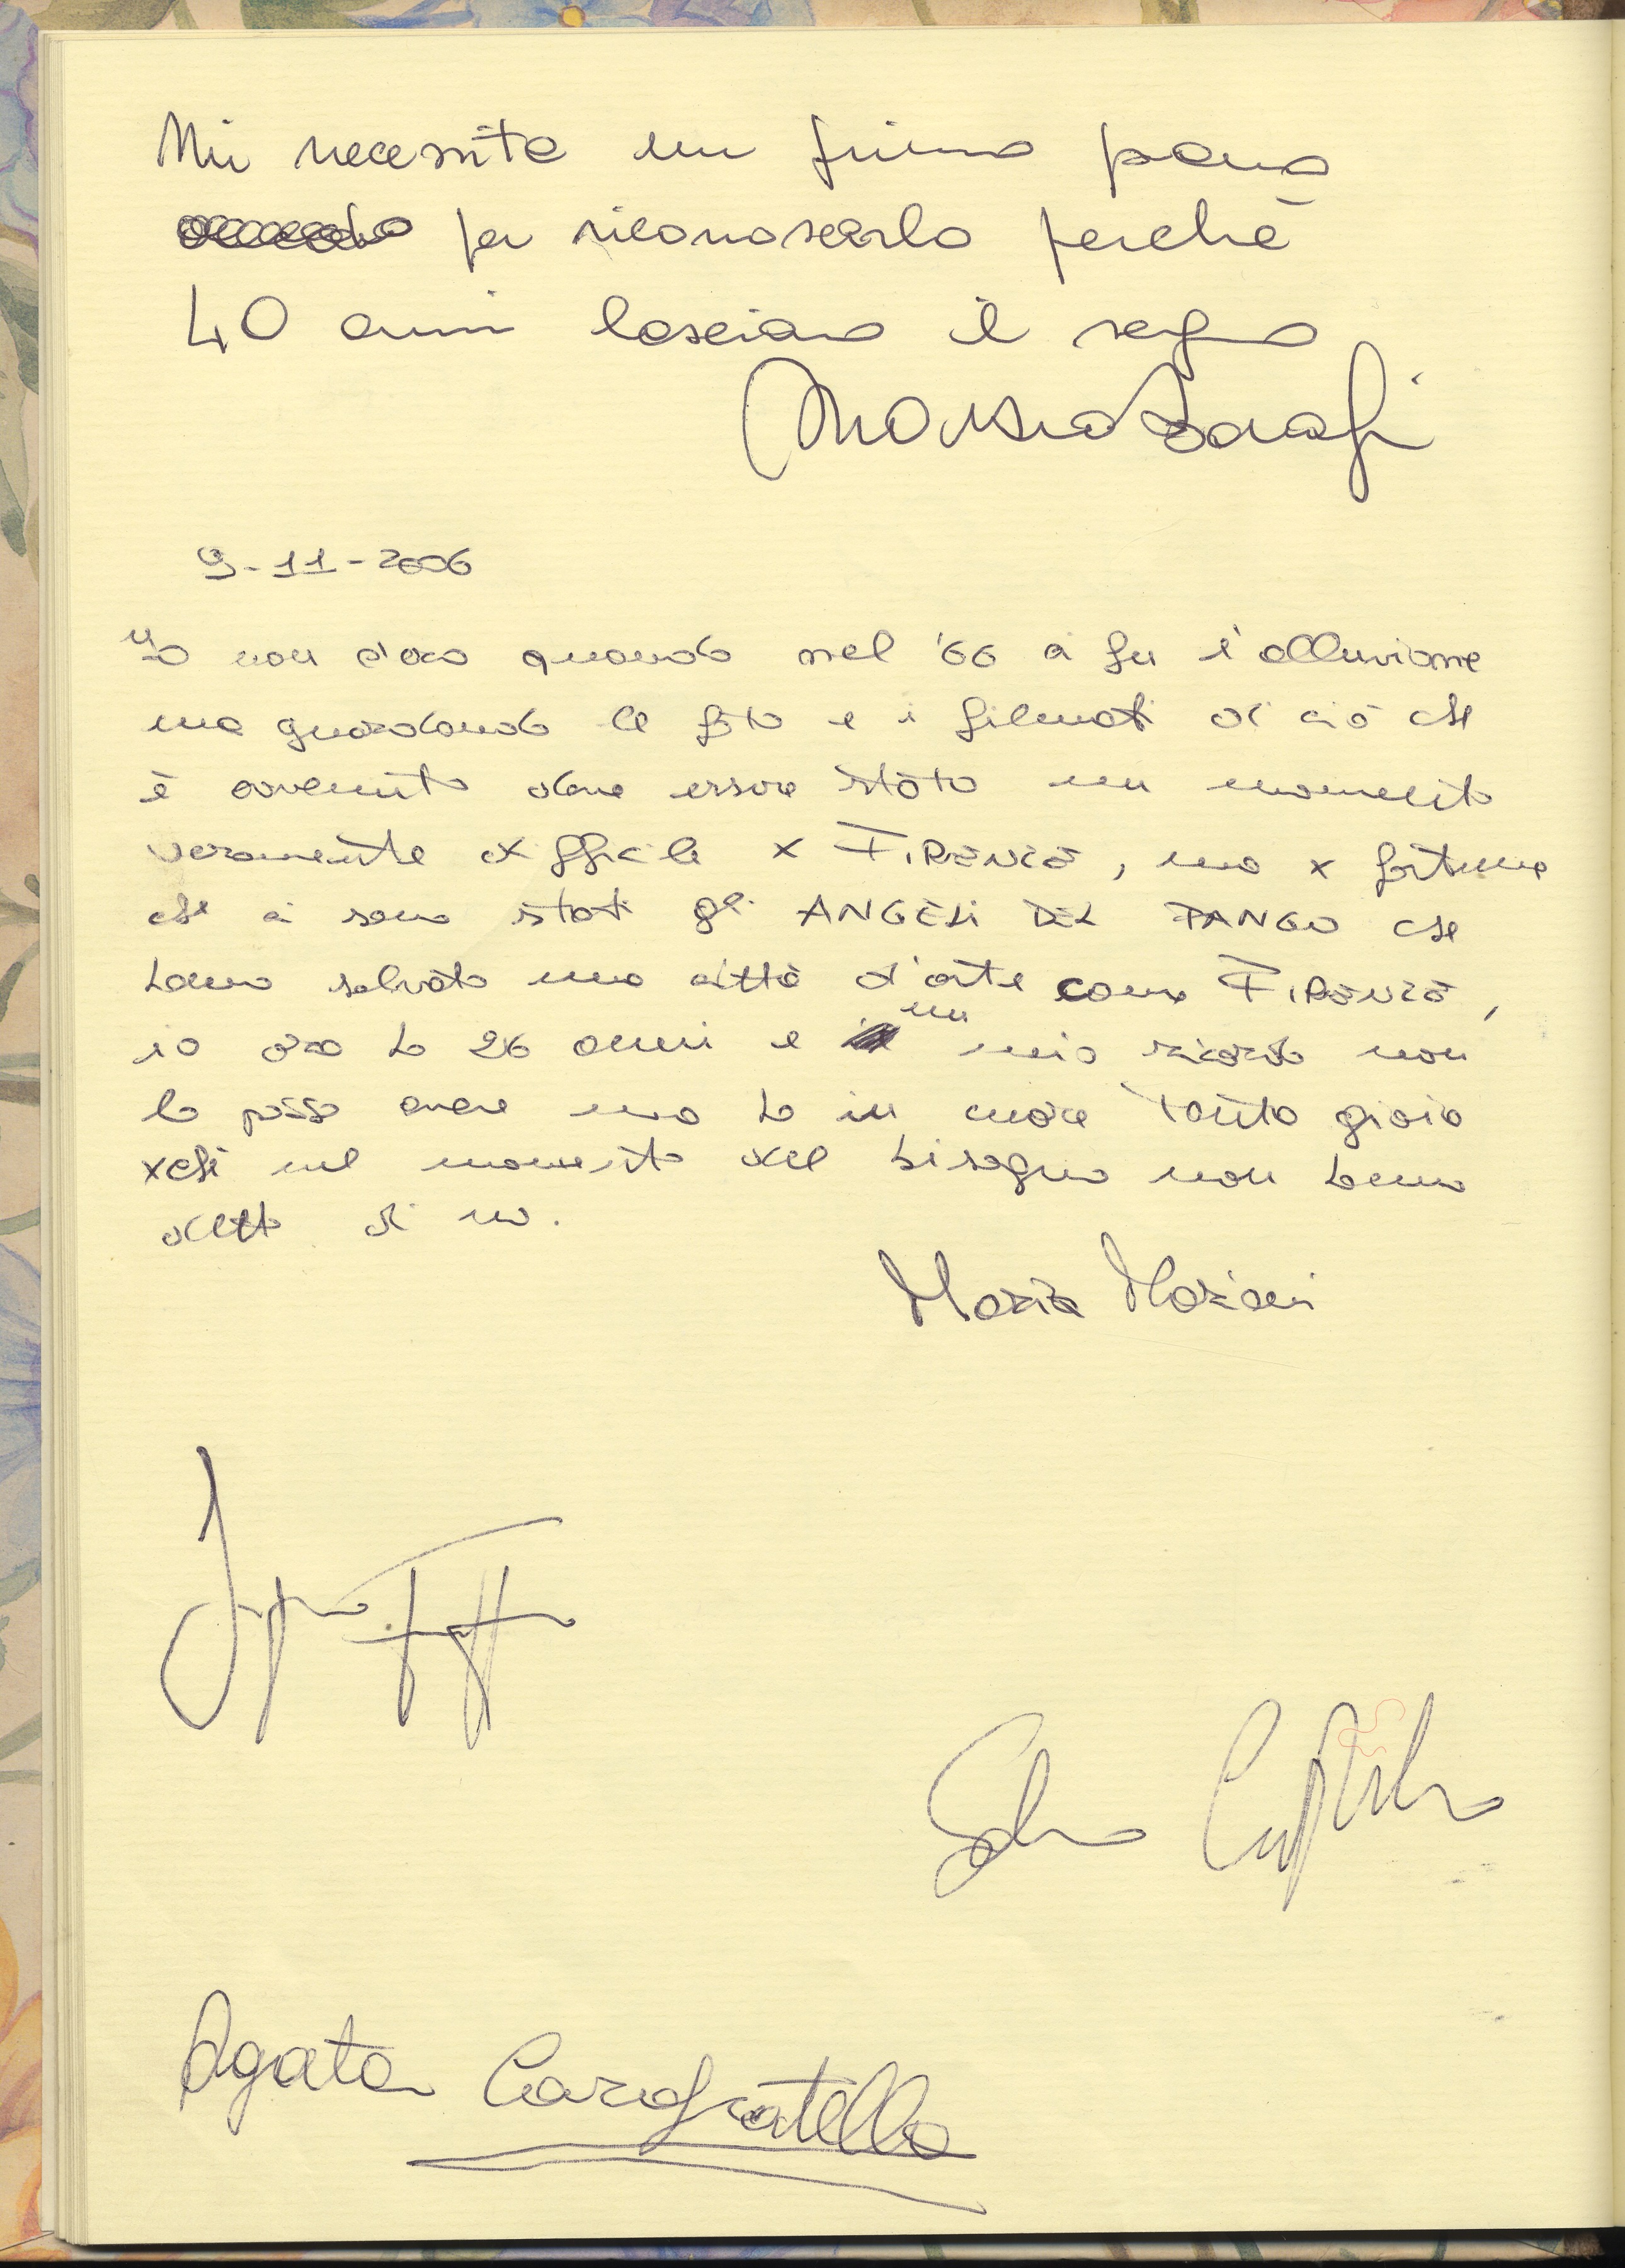 Mi necessita un primo piano
per riconoscerlo perchè
40 anni lasciano il segno
9-11-2006
Io non c'ero quando nel '66 ci fu l'alluvione
ma guardando le foto e i filmati di ciò che
è avvenuto deve essere stato un momento
veramente difficile x FIRENZE, ma x fortuna
che ci sono stati gli ANGELI DEL FANGO che
hanno salvato una città d'arte come FIRENZE,
io ora ho 26 anni e un mio ricordo non
lo posso avere ma ho in cuore tanta gioia
xchè nel momento del bisogno non hanno
detto di no.
Maria Mariani
Agata Carofratello